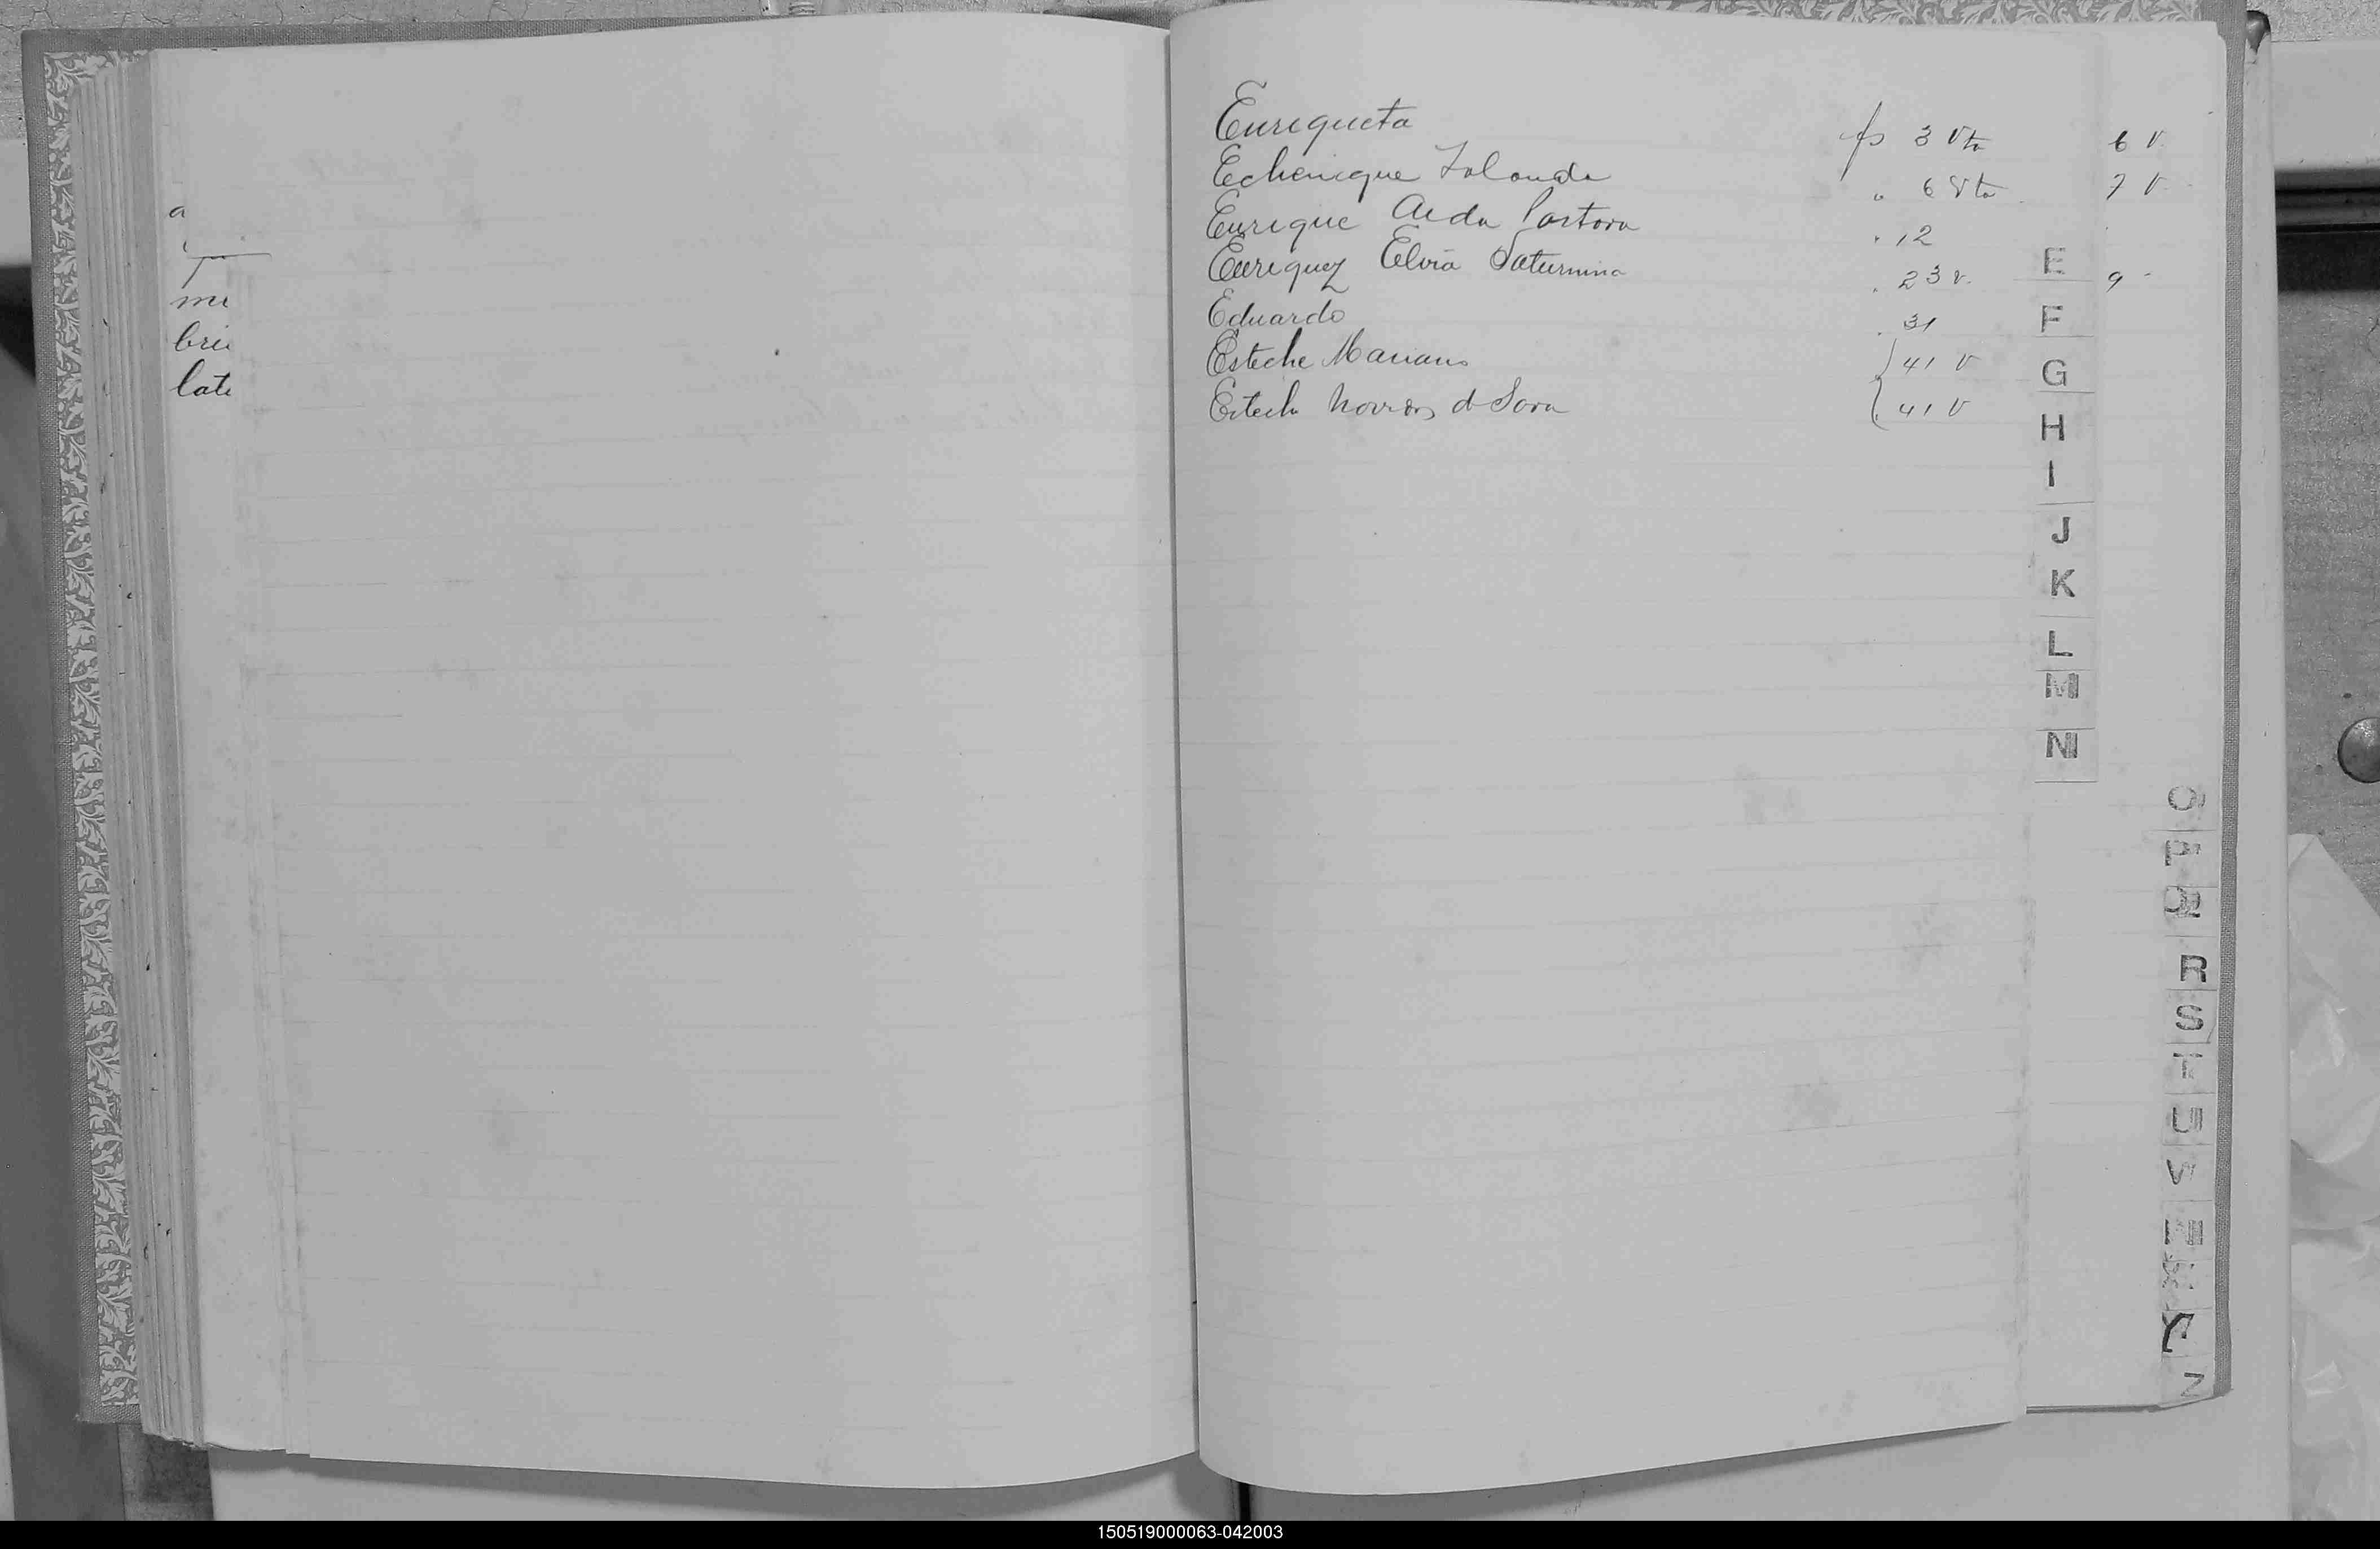 a
mi
bri
lati
Enriqueta fs 3 Vta
Echenique Iolanda " 6 Vta
Enrique Aida Pastora " 12
Enriquez Elvia Saturnina " 23 v.
Eduardo " 31
Esteche Mariano 41 v
Estech d Sora 41 v
6 v.
7 v.
9
E
F
G
H
I
J
K
L
M
N
O
P
Q
R
S
T
U
V
Y
Z
150519000063-042003